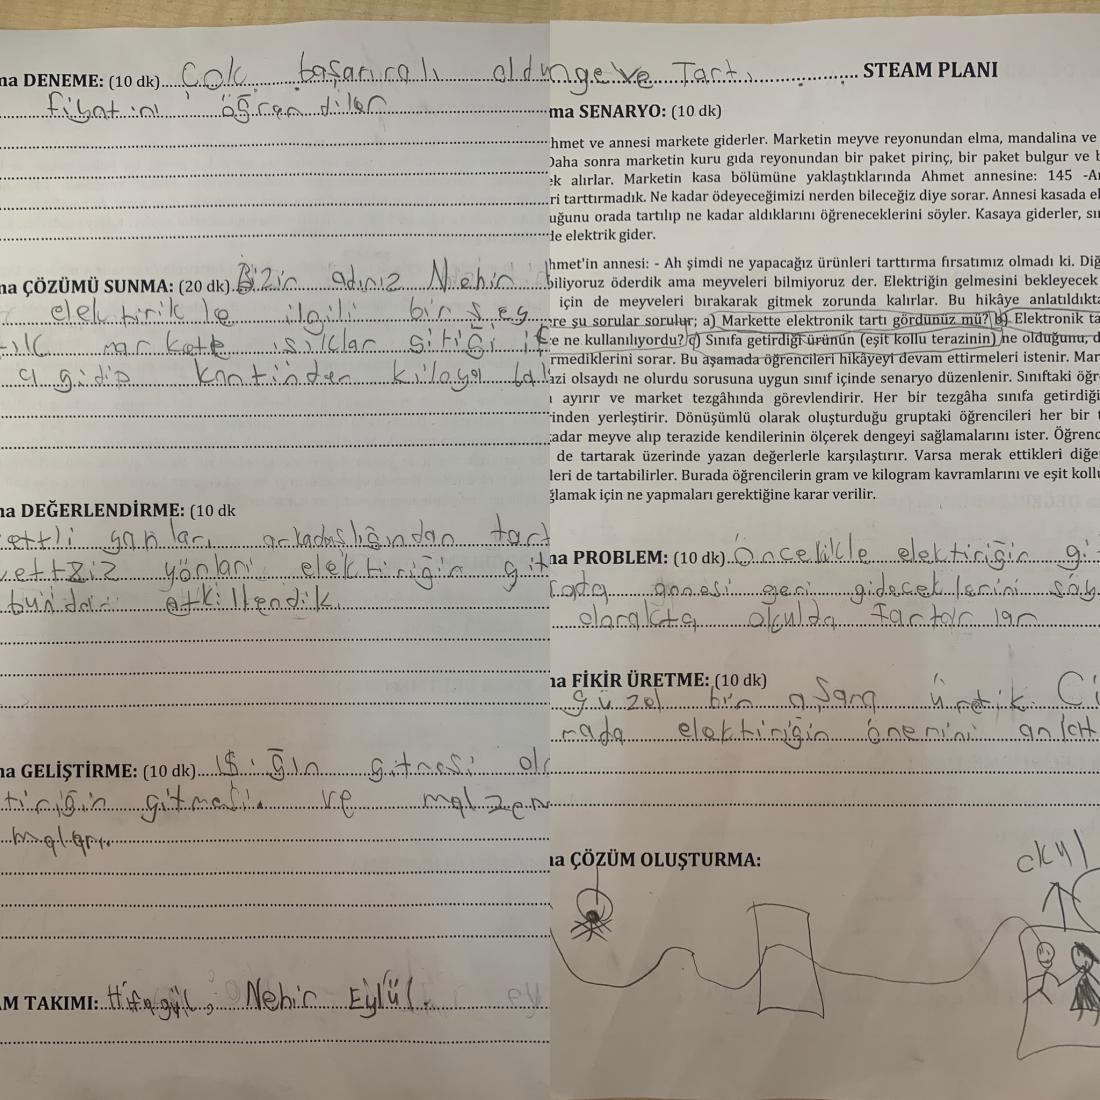 ma DENEME: (10 dk) Çok başarıralı oldu
fiyatını öğrendiler
ma ÇÖZÜMÜ SUNMA: (20 dk). Bizin adınız Nehin
elektirik le ilgili bir şey
markete ışıklar gittiği
gidip kantinden kiloyal
ma DEĞERLENDİRME: (10 dk
ettli yanları arkadaşlığından tart
vettziz yönlani elektiriğin git
bundan etkillendik.
ma GELİŞTİRME: (10 dk) Işığın gitmesi
tiriğin gitmesi. ve malzem
maları.
AM TAKIMI: Hifagül, Nehir Eylül.
nge Ve Tartı STEAM PLANI
ma SENARYO: (10 dk)
hmet ve annesi markete giderler. Marketin meyve reyonundan elma, mandalina ve
Daha sonra marketin kuru gıda reyonundan bir paket pirinç, bir paket bulgur ve b
ek alırlar. Marketin kasa bölümüne yaklaştıklarında Ahmet annesine: 145 -An
ri tarttırmadık. Ne kadar ödeyeceğimizi nerden bileceğiz diye sorar. Annesi kasada el
uğunu orada tartılıp ne kadar aldıklarını öğreneceklerini söyler. Kasaya giderler, sır
de elektrik gider.
hmet'in annesi: - Ah şimdi ne yapacağız ürünleri tarttırma fırsatımız olmadı ki. Diğ
biliyoruz öderdik ama meyveleri bilmiyoruz der. Elektriğin gelmesi bekleyecek
için de meyveleri bırakarak gitmek zorunda kalırlar. Bu hikâye anlatıldıkta
re şu sorular sorulur; a) Markette elektronik tartı gördünüz mü? b) Elektronik ta
e ne kullanılıyordu? c) Sınıfa getirdiği ürünün (eşit kollu terazinin) ne olduğunu, d
rmediklerini sorar. Bu aşamada öğrencileri hikâyeyi devam ettirmeleri istenir. Mar
azi olsaydı ne olurdu sorusuna uygun sınıf içinde senaryo düzenlenir. Sınıftaki öğr
ı ayırır ve market tezgâhında görevlendirir. Her bir tezgâha sınıfa getirdiği
inden yerleştirir. Dönüşümlü olarak oluşturduğu gruptaki öğrencileri her bir t
adar meyve alıp terazide kendilerinin ölçerek dengeyi sağlamalarını ister. Öğrenc
de tartarak üzerinde yazan değerlerle karşılaştırır. Varsa merak ettikleri diğe
leri de tartabilirler. Burada öğrencilerin gram ve kilogram kavramlarını ve eşit kollu
ğlamak için ne yapmaları gerektiğine karar verilir.
ma PROBLEM: (10 dk). Öncelikle elektiriğin gi
annesi geri gideceklerini söy
olarakta okulda tartar lar
ma FİKİR ÜRETME: (10 dk)
güzel bir aşama ürettik.
rada elektiriğin önemini anlatt
ma ÇÖZÜM OLUŞTURMA:
okul